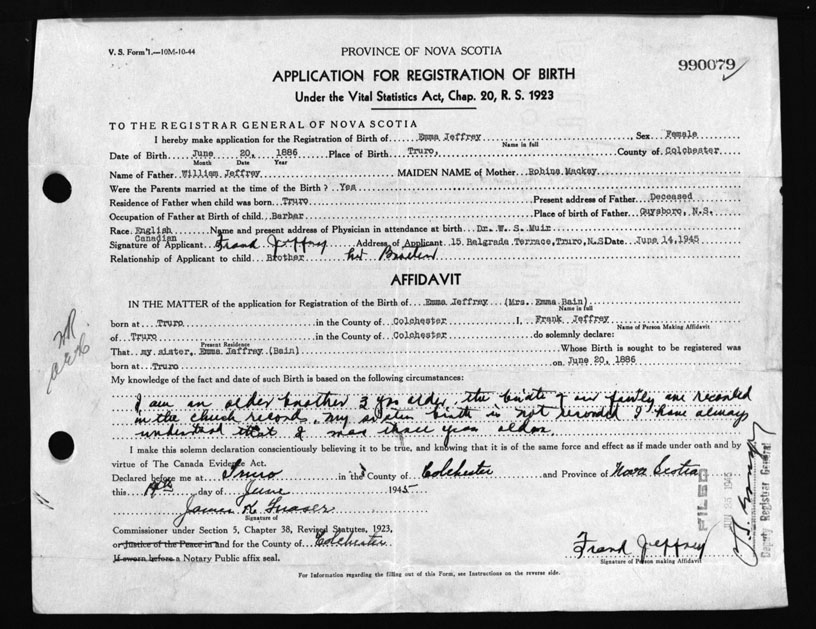 V. S. Form 1.—10M-10-44
PROVINCE OF NOVA SCOTIA
990079
APPLICATION FOR REGISTRATION OF BIRTH
Under the Vital Statistics Act, Chap. 20, R. S. 1923
TO THE REGISTRAR GENERAL OF NOVA SCOTIA
I hereby make application for the Registration of Birth of Emma Jeffrey, Sex Female
Name in full
Date of Birth June 20, 1886 Place of Birth Truro, County of Colchester
Month Date Year
Name of Father William Jeffrey MAIDEN NAME of Mother Robina Mackey
Were the Parents married at the time of the Birth? Yes
Residence of Father when child was born Truro Present address of Father Deceased
Occupation of Father at Birth of child Barbar Place of birth of Father Guysboro, N.S.
Race English Canadian Name and present address of Physician in attendance at birth Dr. W. S. Muir
Signature of Applicant Frank Jeffrey Address of Applicant 15 Belgrade Terrace, Truro, N.S. Date June 14, 1945
Relationship of Applicant to child Brother her Brother
AFFIDAVIT
IN THE MATTER of the application for Registration of the Birth of Emma Jeffrey (Mrs. Emma Bain)
Name in full
born at Truro in the County of Colchester I, Frank Jeffrey
Name of Person Making Affidavit
of Truro in the County of Colchester do solemnly declare:
Present Residence
That my sister, Emma Jeffrey (Bain) Whose Birth is sought to be registered was
born at Truro on June 20, 1886
My knowledge of the fact and date of such Birth is based on the following circumstances:
I am an older brother 3 yrs older. the births of our family are recorded
in the church records. my sisters birth is not recorded I have always
understood that I was three years older.
I make this solemn declaration conscientiously believing it to be true, and knowing that it is of the same force and effect as if made under oath and by
virtue of The Canada Evidence Act.
Declared before me at Truro in the County of Colchester and Province of Nova Scotia
this 14th day of June 1945
James H. Fraser
Signature of
Commissioner under Section 5, Chapter 38, Revised Statutes, 1923,
or Justice of the Peace in and for the County of Colchester
If sworn before a Notary Public affix seal.
Frank Jeffrey
Signature of Person making Affidavit
For Information regarding the filling out of this Form, see Instructions on the reverse side.
FILED
1945
Deputy Registrar General